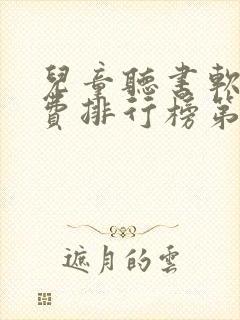 兒童聽書軟
費排行榜第
遮月的雲